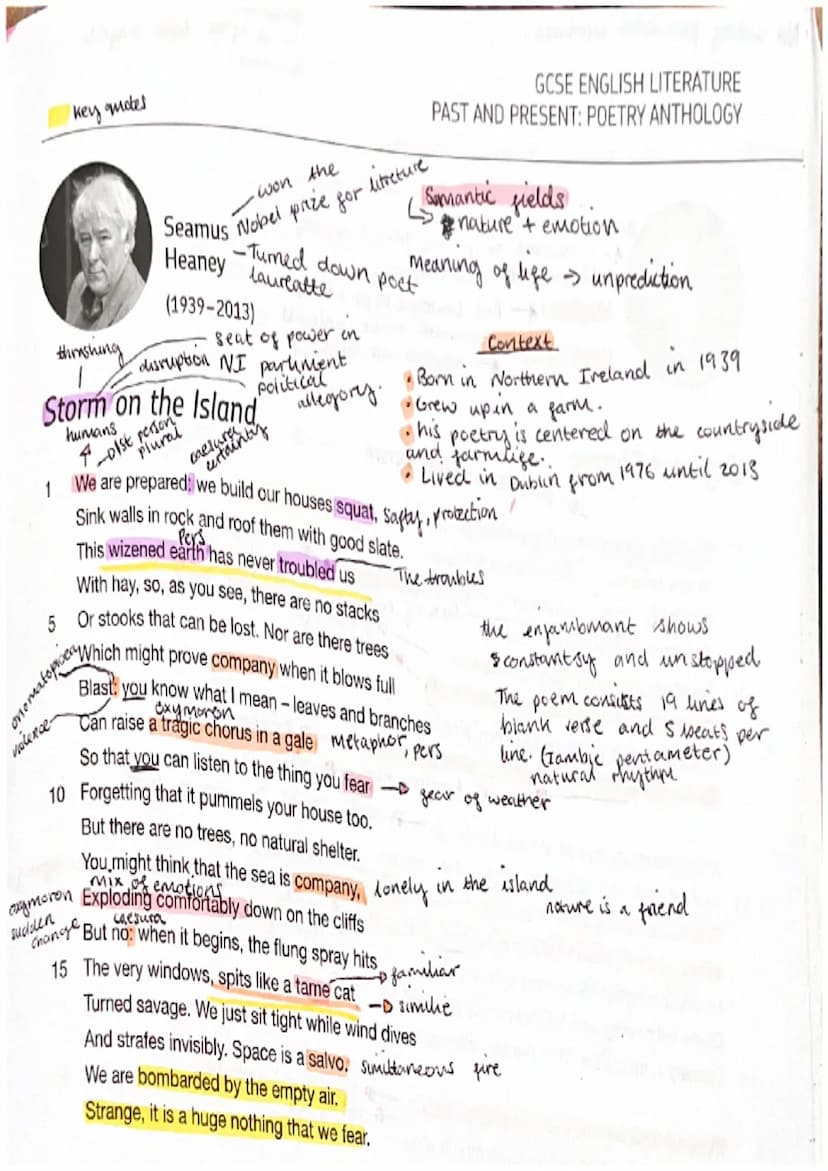 key quotes
GCSE ENGLISH LITERATURE
PAST AND PRESENT: POETRY ANTHOLOGY
won the
Seamus Nobel prize for litreture
Heaney - Turned down poet
laureatte
(1939–2013)
Semantic fields
nature + emotion
meaning of life → unprediction
thrashing
disruption
seat of power in
NI parliment
political
allegory.
Storm on the Island
humans
01st person
plural
caesura
certainty
Context
• Born in Northern Ireland in 1939
• Grew up in a farm.
• his poetry is centered on the countryside
and farmlife.
• Lived in Dublin from 1976 until 2013
1 We are prepared: we build our houses squat, Safty, protection
Sink walls in rock and roof them with good slate.
pers
This wizened earth has never troubled us The troubles
With hay, so, as you see, there are no stacks
5 Or stooks that can be lost. Nor are there trees
Which might prove company when it blows full
onomatopoeia
Blast: you know what I mean – leaves and branches
violence
oxymoron
Can raise a tragic chorus in a gale metaphor, pers
So that you can listen to the thing you fear → fear of weather
10 Forgetting that it pummels your house too.
But there are no trees, no natural shelter.
You might think that the sea is company, lonely in the island
nature is a friend
mix of emotions
oxymoron
Exploding comfortably down on the cliffs
sudden
change
caesura
But no: when it begins, the flung spray hits
15 The very windows, spits like a tame cat
→ familiar
→ similie
Turned savage. We just sit tight while wind dives
And strafes invisibly. Space is a salvo. simultaneous fire
We are bombarded by the empty air.
Strange, it is a huge nothing that we fear.
the enjambmant shows
constantsy and unstopped
The poem consists 19 lines of
blank verse and 5 beats per
line. (Iambic pentameter)
natural rhythm